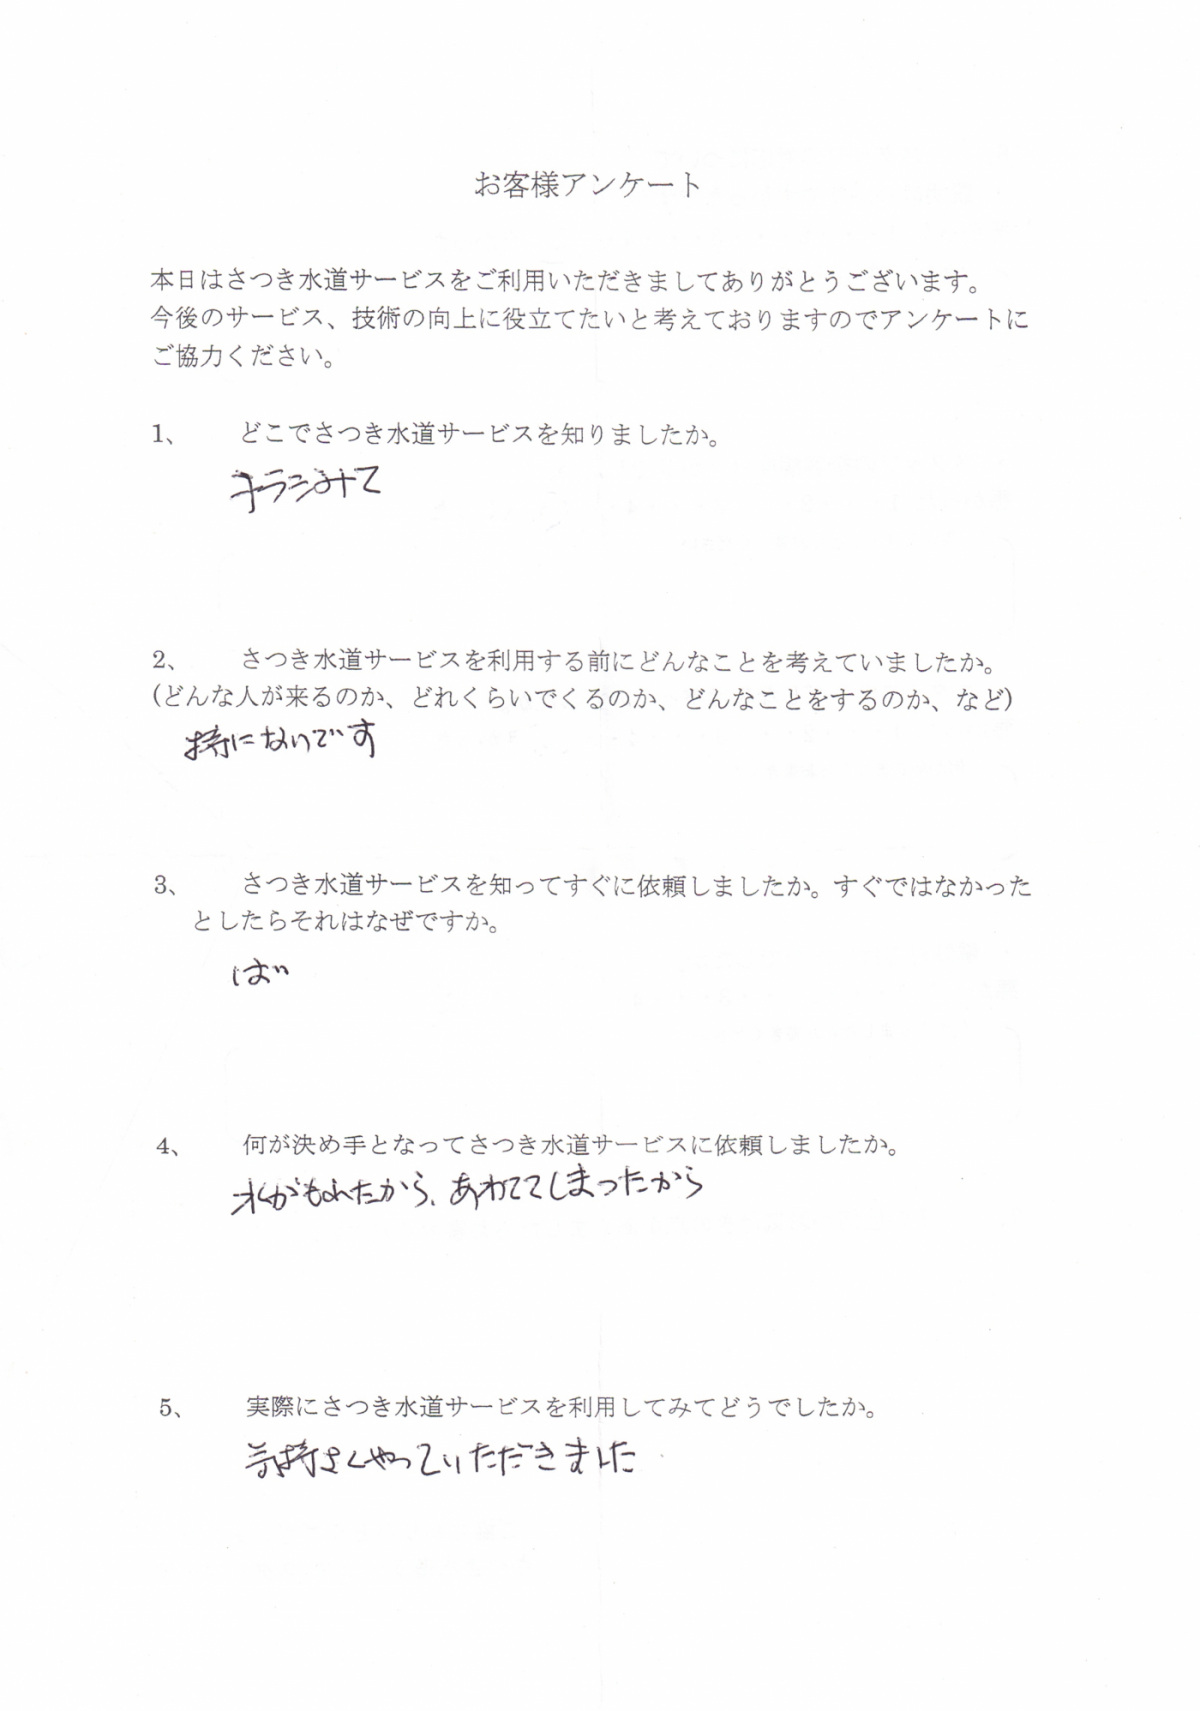 お客様アンケート
本日はさつき水道サービスをご利用いただきましてありがとうございます。
今後のサービス、技術の向上に役立てたいと考えておりますのでアンケートに
ご協力ください。
1、 どこでさつき水道サービスを知りましたか。
チラシみて
2、 さつき水道サービスを利用する前にどんなことを考えていましたか。
(どんな人が来るのか、どれくらいでくるのか、どんなことをするのか、など)
特にないです
3、 さつき水道サービスを知ってすぐに依頼しましたか。すぐではなかった
としたらそれはなぜですか。
はい
4、 何が決め手となってさつき水道サービスに依頼しましたか。
水がもれたから、あわててしまったから
5、 実際にさつき水道サービスを利用してみてどうでしたか。
気持よくやっていただきました